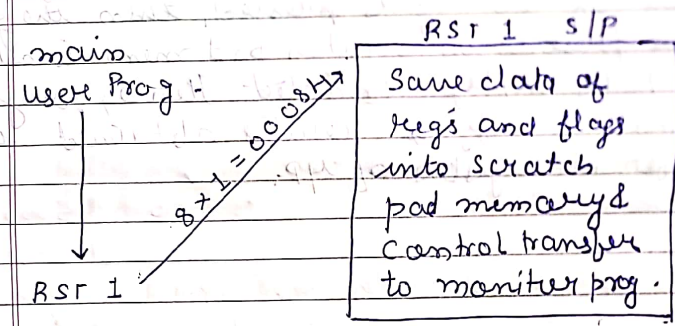 main
user Prog.
RST 1
8 + 1 = 0008H
RST 1 S/P
Save data of
reg's and flags
into scratch
pad memory &
Control transfer
to moniter prog.